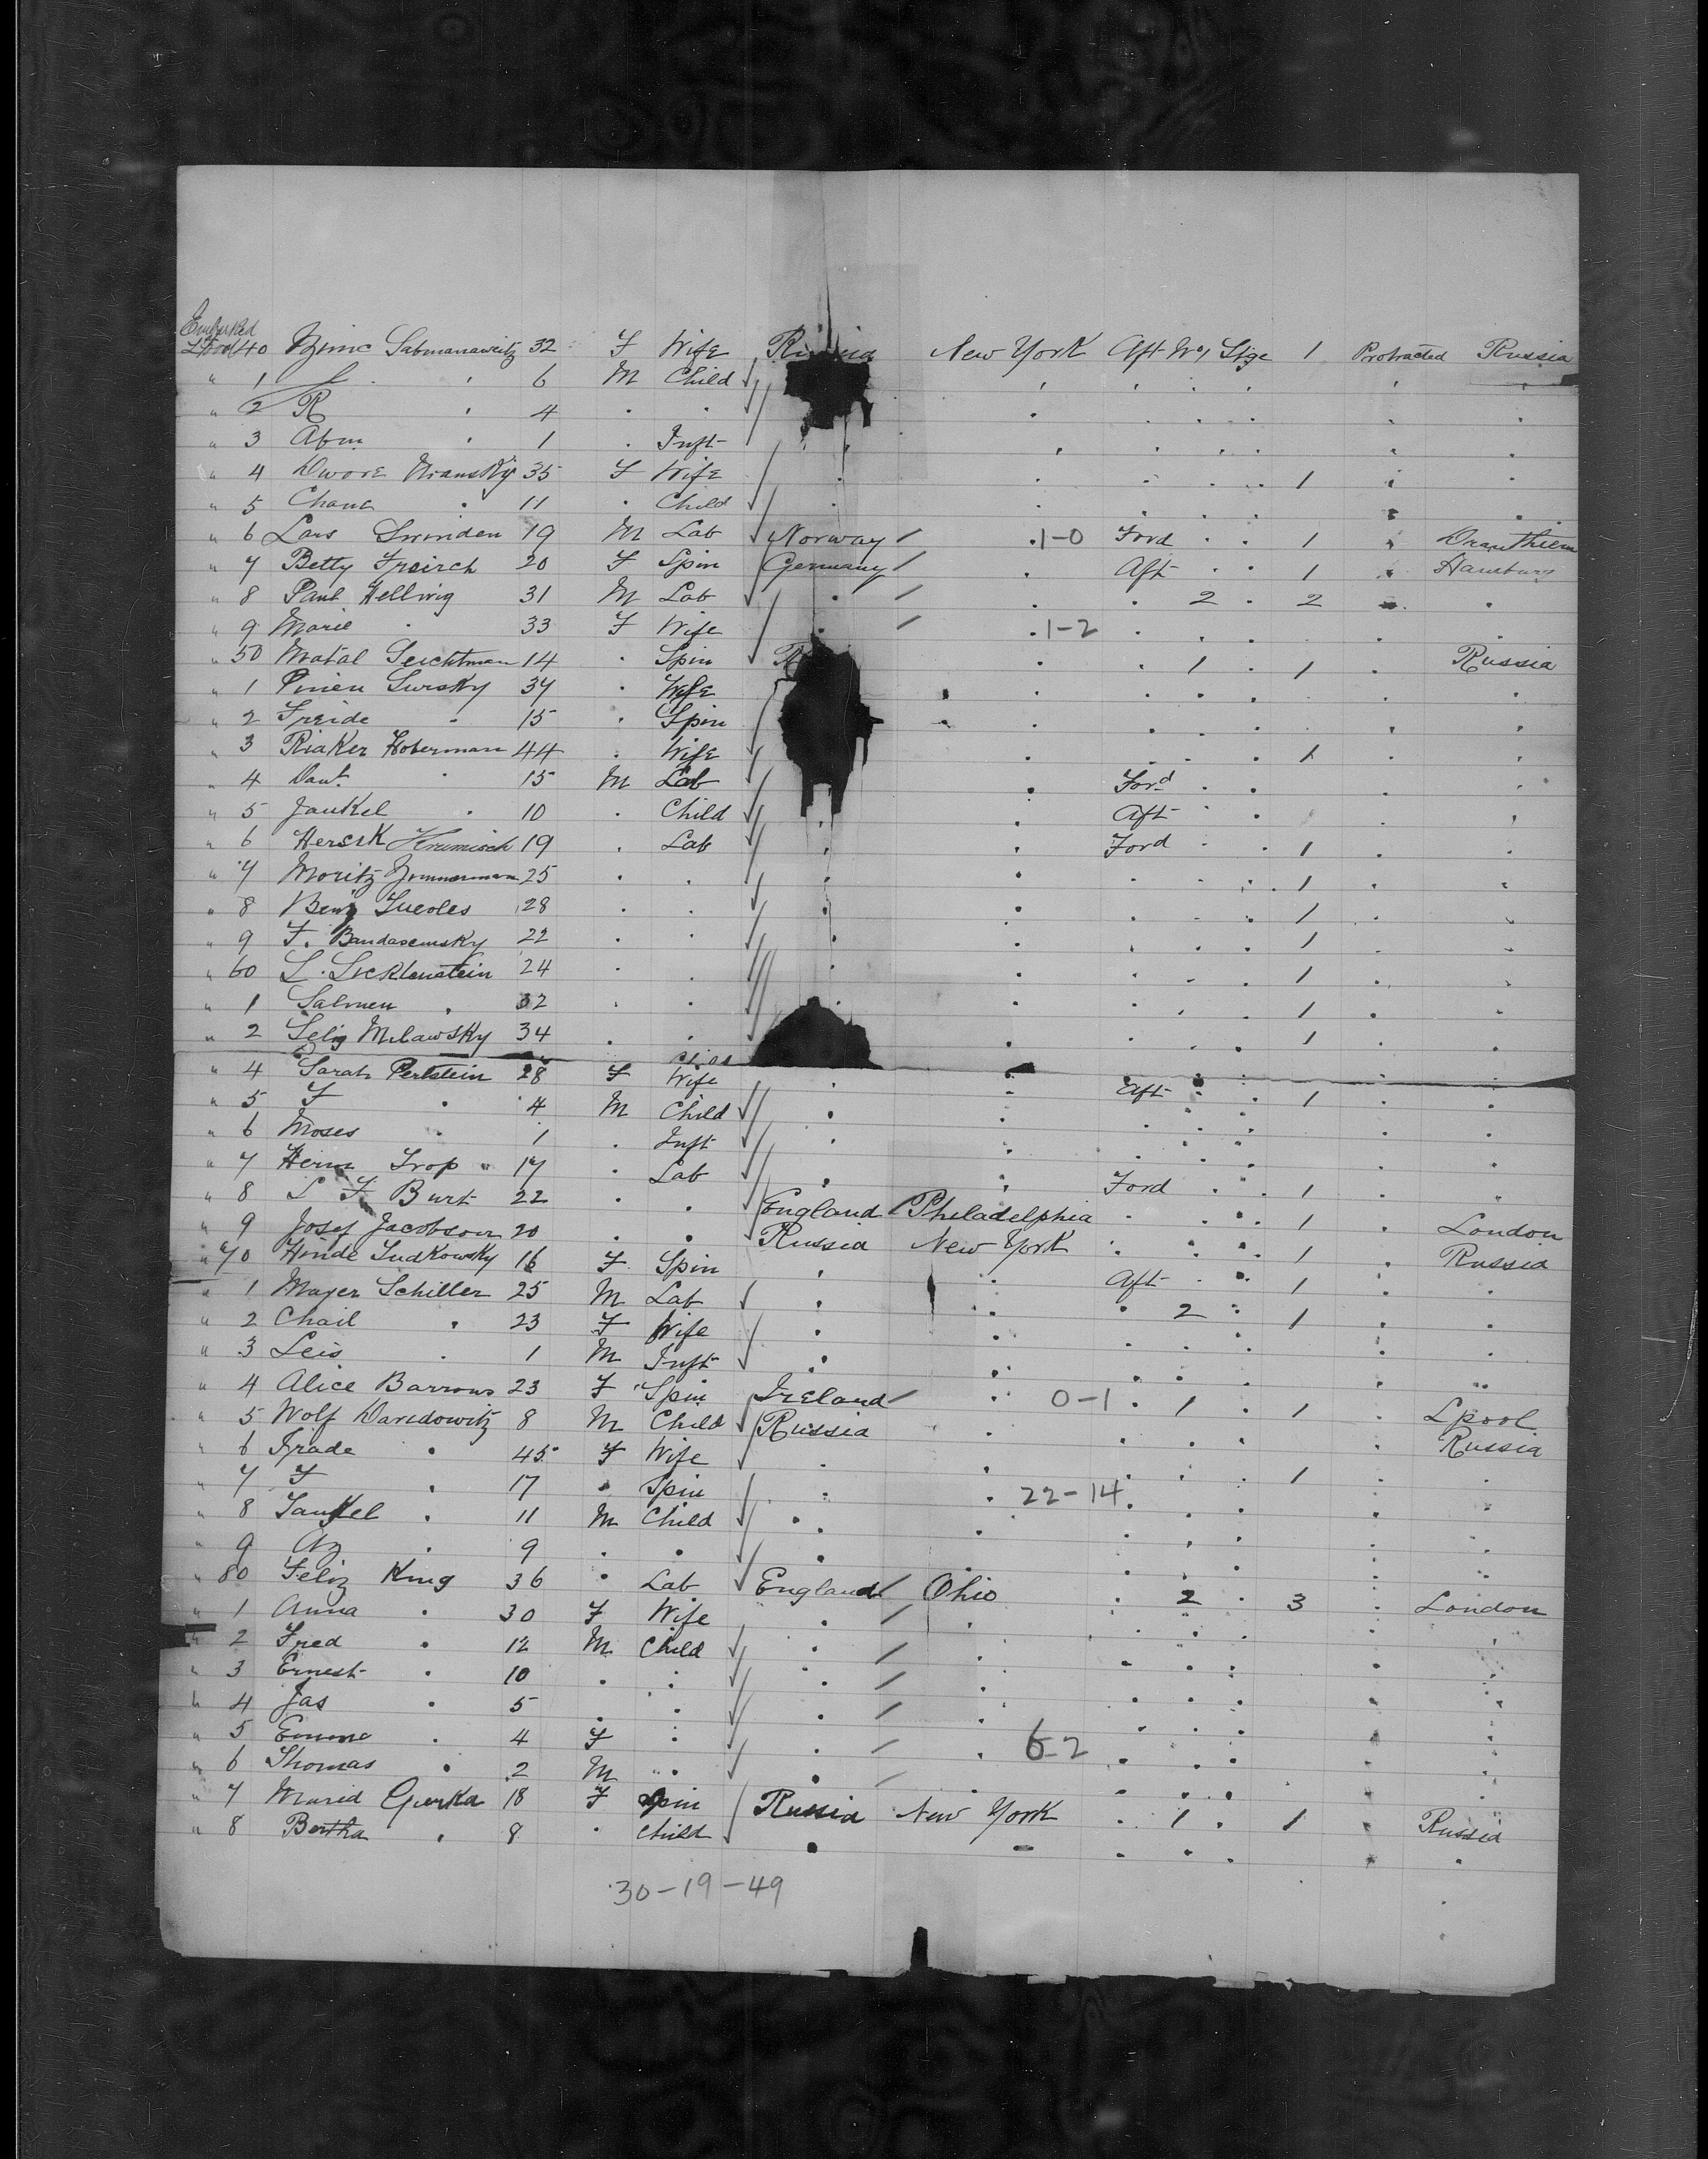 Embarked
L'pool 40 Salmanaweitz 32 F Wife Russia New York Aft No 1 Stge 1 Protracted Russia
" 1 . 6 M Child
" 2 R . 4 . .
" 3 Abm . 1 . Inft
" 4 Dwore 35 F Wife . . . . . 1 . .
" 5 Chana . 11 . Child
" 6 Lars 19 M Lab Norway . 1-0 Ford . . 1 . Dronthiem
" 7 Betty 20 F Spin Germany . Aft . . 1 . Hamburg
" 8 Paul Hellwig 31 M Lab . . . 2 . 2 . .
" 9 Marie . 33 F Wife . . 1-2 . . . . .
" 50 14 . Spin R . . 1 . 1 . Russia
" 1 Sursky 37 . Wife
" 2 Freide . 15 . Spin
" 3 Hoberman 44 . Wife . . . . 1 . .
" 4 . 15 M Lab . Ford . . . .
" 5 Jankel . 10 . Child . . Aft . . . .
" 6 19 . Lab . . Ford . . 1 . .
" 7 Moritz Zimmerman 25 . . . . . . . 1 . .
" 8 Benj 28 . . . . . . . 1 . .
" 9 F. Bandasemsky 22 . . . . . . . 1 . .
" 60 24 . . . . . . . 1 . .
" 1 Salmen . 32 . . . . . . . 1 . .
" 2 Selig Milawsky 34 . . . . . . 1 . .
" 4 Sarah Perlstein 28 F Wife . . Aft . . 1 . .
" 5 F . 4 M Child
" 6 Moses . 1 . Inft
" 7 17 . Lab . . Ford . . 1 . .
" 8 Burt 22 . . England Philadelphia . . . 1 . London
" 9 Josef Jacobson 20 . . Russia New York . . . 1 . Russia
" 70 Hinde Sudkowsky 16 F Spin . . Aft . . 1 . .
" 1 Mayer Schiller 25 M Lab . . . 2 . 1 . .
" 2 Chail . 23 F Wife
" 3 Leis . 1 M Inft
" 4 Alice Barrows 23 F Spin Ireland . 0-1 . 1 . 1 . Lpool
" 5 Wolf Davidowitz 8 M Child Russia . . . . . Russia
" 6 . 45 F Wife . . . . . 1 . .
" 7 F . 17 . Spin . . 22-14 . . . . .
" 8 . 11 M Child
" 9 . 9 . .
" 80 Feliz King 36 . Lab England Ohio . 2 . 3 . London
" 1 Anna . 30 F Wife
" 2 Fred . 12 M Child
" 3 Ernest . 10 . .
" 4 Jas . 5 . .
" 5 Emma . 4 F . . . 6-2 . . . . .
" 6 Thomas . 2 M .
" 7 18 F Spin Russia New York . 1 . 1 . Russia
" 8 Bertha . 8 . Child
30-19-49